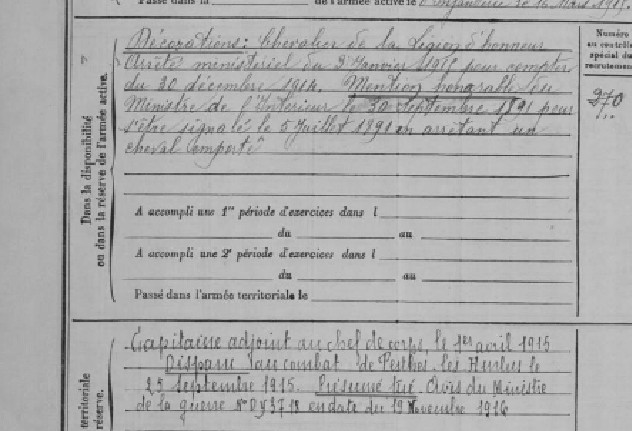 Passé dans la de l'armée active le
Décorations: Chevalier de la Légion d'honneur
Arrêté ministériel du 3 Janvier 1915 pour compter
du 30 décembre 1914. Mention honorable du
Ministre de l'Intérieur le 30 Septembre 1891 pour
s'être signalé le 5 Juillet 1891 en arrêtant un
cheval emporté
Numéro
au contrôle
spécial du
recrutement
270
Dans la disponibilité
ou dans la réserve de l'armée active.
A accompli une 1re période d'exercices dans l
du au
A accompli une 2e période d'exercices dans l
du au
Passé dans l'armée territoriale le
Capitaine adjoint au chef de corps, le 1er avril 1915
Disparu au combat de Perthes les Hurlus le
25 Septembre 1915. Présumé tué Avis du Ministre
de la guerre N° en date du 19 Novembre 1916
territoriale
réserve.